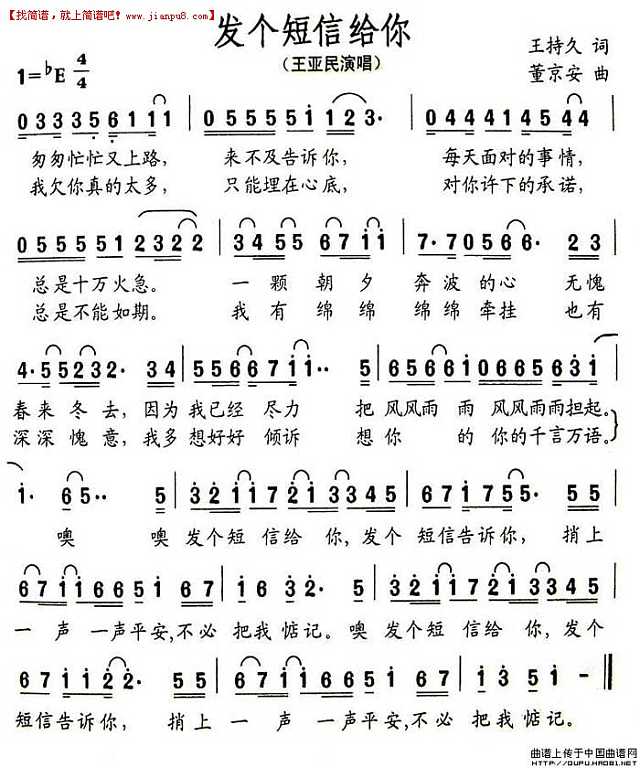 【找简谱,就上简谱吧! www.jianpu8.com】
发个短信给你
(王亚民演唱)
王持久 词
董京安 曲
1=♭E 4/4
0 3 3 3 5 6 1 1 1 | 0 5 5 5 5 5 1 1 2 3· | 0 4 4 4 1 4 5 4 4 |
匆匆忙忙又上路, 来不及告诉你, 每天面对的事情,
我欠你真的太多, 只能埋在心底, 对你许下的承诺,
0 5 5 5 5 5 1 2 3 2 2 | 3 4 5 5 6 7 1 1 | 7· 7 0 5 6 6 2 3 |
总是十万火急。 一颗朝夕奔波的心 无愧
总是不能如期。 我有绵绵绵绵牵挂 也有
4· 5 5 2 3 2·· 3 4 | 5 5 6 6 7 1 1·· 5 | 6 5 6 6 1 0 6 6 5 5 6 3 1 |
春来冬去,因为我已经尽力 把风风雨雨风风雨雨担起。
深深愧意,我多想好好倾诉 想你的你的千言万语。
1· 6 5·· 5 | 3 2 1 1 7 2 1 3 3 4 5 | 6 7 1 7 5 5·· 5 5 |
噢 噢发个短信给你,发个短信告诉你,捎上
6 7 1 1 6 6 5 1 6 7 | 1 6 3 2· 5 | 3 2 1 1 7 2 1 3 4 5 |
一声一声平安,不必把我惦记。噢发个短信给你,发个
6 7 1 1 2 2· 5 5 | 6 7 1 1 6 6 5 1 6 7 | 1 2 5 1· - ‖
短信告诉你,捎上一声一声平安,不必把我惦记。
曲谱上传于中国曲谱网
HTTP://QUPU.HAO81.NET